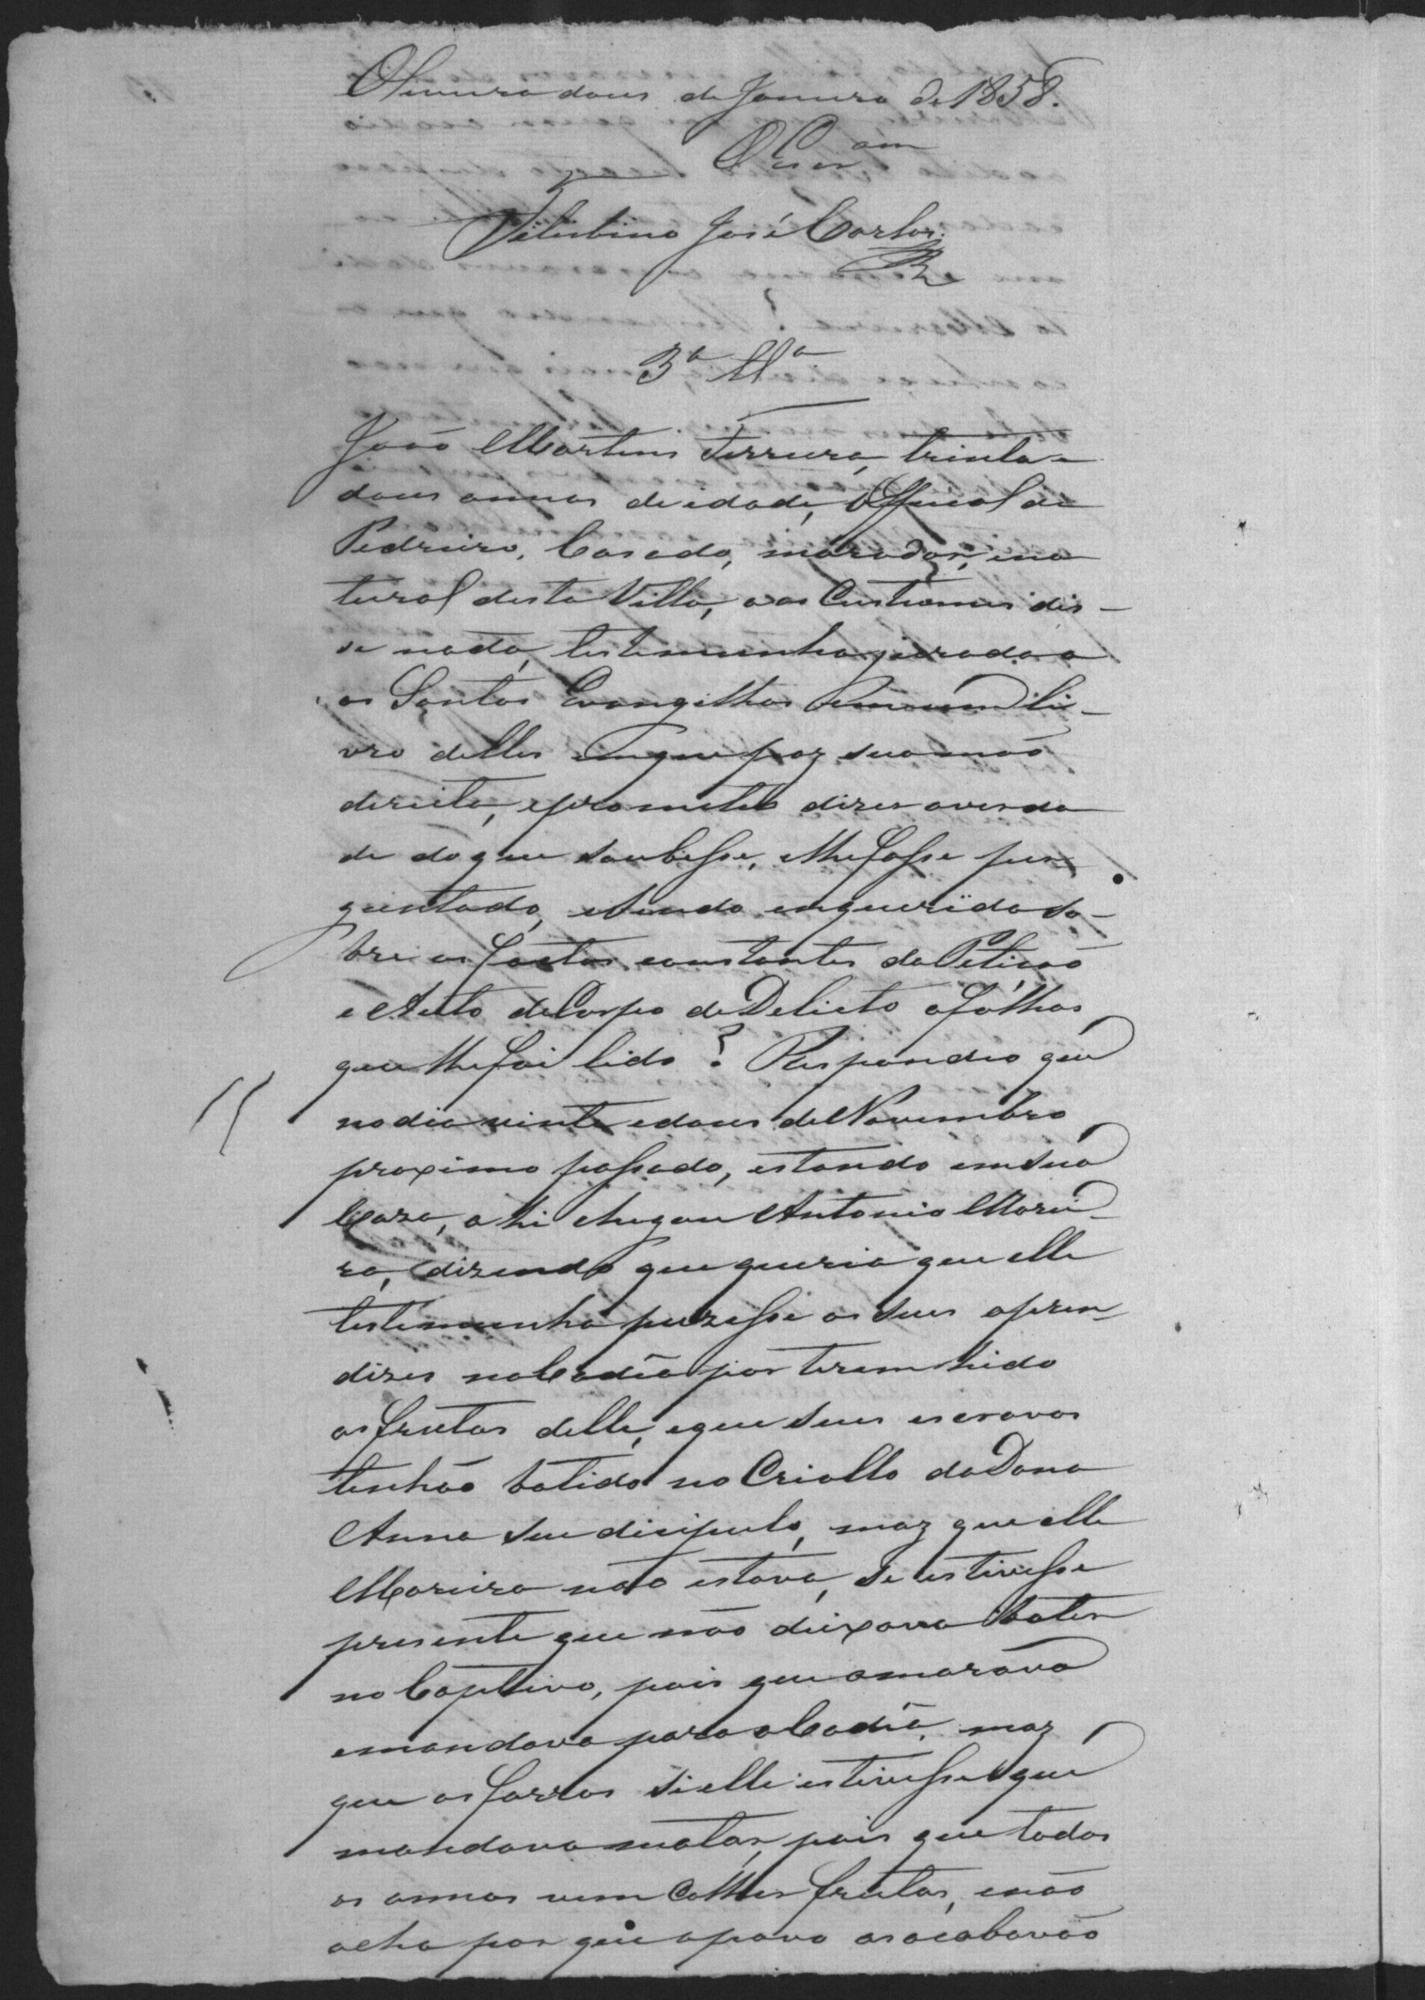 Oliveira dous de Janeiro de 1858.
O Escr.am
Felisbino José Carlos
3.a tt.a
João Martins Ferreira, trinta e
dous annos de idade, Official de
Pedreiro, Casado, morador, e na
tural desta Villa, aos Custumes dis-
se nada, testemunha jurada a
os Santos Evangelhos em um li-
vro delles em que poz sua mão
direita, e prometeo dizer a verda
de do que soubesse, e lhe fosse per
guntado, e sendo enquerido so-
bre os factos constantes da Petição
e Auto de Corpo de Delicto a fôlhas
que lhe foi lido? Respondeo que
no dia vinte e dous de Novembro
proximo passado, estando em sua
Caza, ahi chegou Antonio Morei
ra, dizendo que queria que elle
testemunha puzesse os seus apren-
dizes na Cadêa por terem hido
as frutas delle, e que seus escravos
tinhão batido no Criollo da Dona
Anna seu discipulo, maz que elle
Moreira não estava, se estivesse
presente que não deixava bater
no Captivo, pois que amarava
e mandava para a Cadêa, maz
que os forros si elle estivesse que
mandava matar, pois que todos
os annos vem colher frutas, e não
acha por que o povo as acabavão